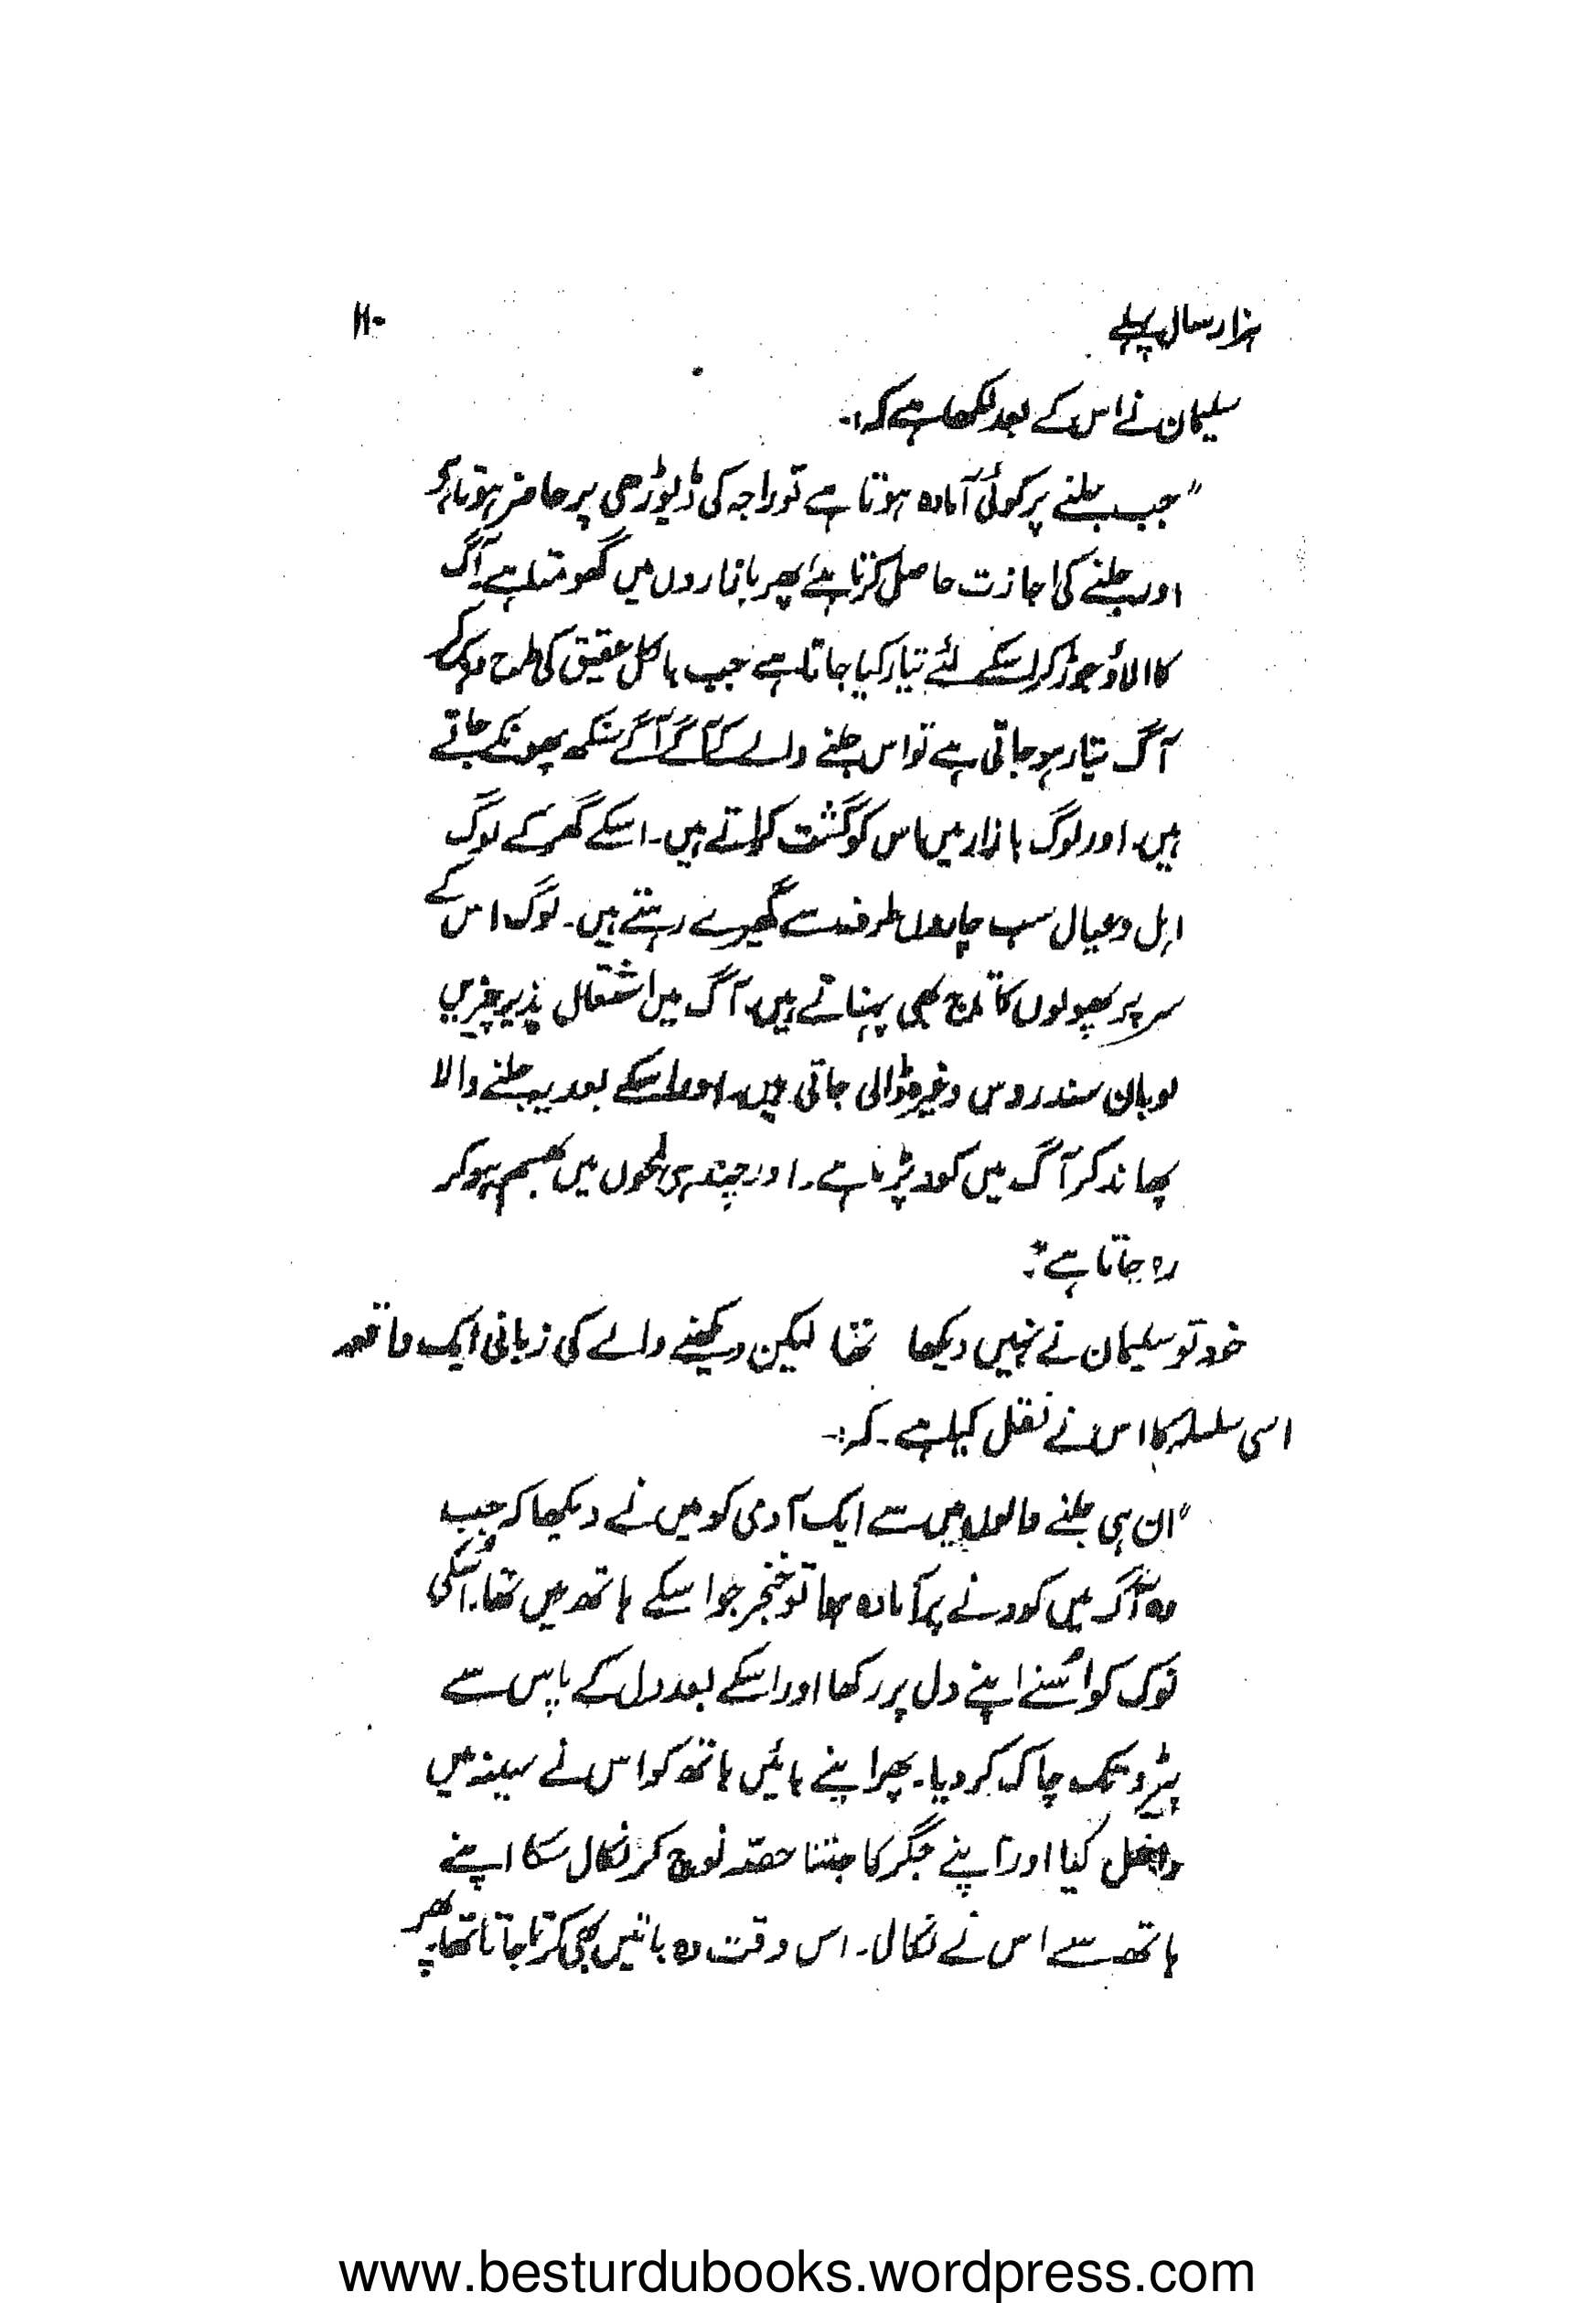 ہزار سال پہلے
۱۱۰
سلیمان نے اس کے بعد لکھا ہے کہ:۔
"جب جلنے پر کوئی آمادہ ہوتا ہے تو راجہ کی ڈیوڑھی پر حاضر ہوتا ہے
اور جلنے کی اجازت حاصل کرتا ہے، پھر بازاروں میں گھومتا ہے۔ آگ
کا الاؤ جوڑ کر اسکے لئے تیار کیا جاتا ہے جب بالکل عقیق کی طرح دہک کر
آگ تیار ہو جاتی ہے تو اس جلنے والے کے آگے آگے سنکھ پھونکے جاتے
ہیں۔ اور لوگ بازار میں اس کو گشت کراتے ہیں۔ اسکے گھر کے لوگ
اہل و عیال سب چاروں طرف سے گھیرے رہتے ہیں۔ لوگ اس کے
سر پر پھولوں کا تاج بھی پہناتے ہیں۔ آگ میں اشتعال پذیر چیزیں
لوبان سندروس وغیرہ ڈالی جاتی ہیں۔ اور اسکے بعد یہ جلنے والا
پھاند کر آگ میں کود پڑتا ہے۔ اور چند ہی لمحوں میں بھسم ہو کر
رہ جاتا ہے"۔
خود تو سلیمان نے نہیں دیکھا تھا لیکن دیکھنے والے کی زبانی ایک واقعہ
اسی سلسلہ کا اس نے نقل کیا ہے۔ کہ:۔
"ان ہی جلنے والوں میں سے ایک آدمی کو میں نے دیکھا کہ جب
وہ آگ میں کودنے پر آمادہ ہوا تو خنجر جو اسکے ہاتھ میں تھا۔ اُسکی
نوک کو اُسنے اپنے دل پر رکھا اور اسکے بعد دل کے پاس سے
پیڑو تک چاک کر دیا۔ پھر اپنے بائیں ہاتھ کو اس نے سینہ میں
داخل کیا اور اپنے جگر کا جتنا حصّہ نوچ کر نکال سکا اپنے
ہاتھ سے اس نے نکالا۔ اس وقت وہ باتیں بھی کرتا جاتا تھا۔ پھر
www.besturdubooks.wordpress.com